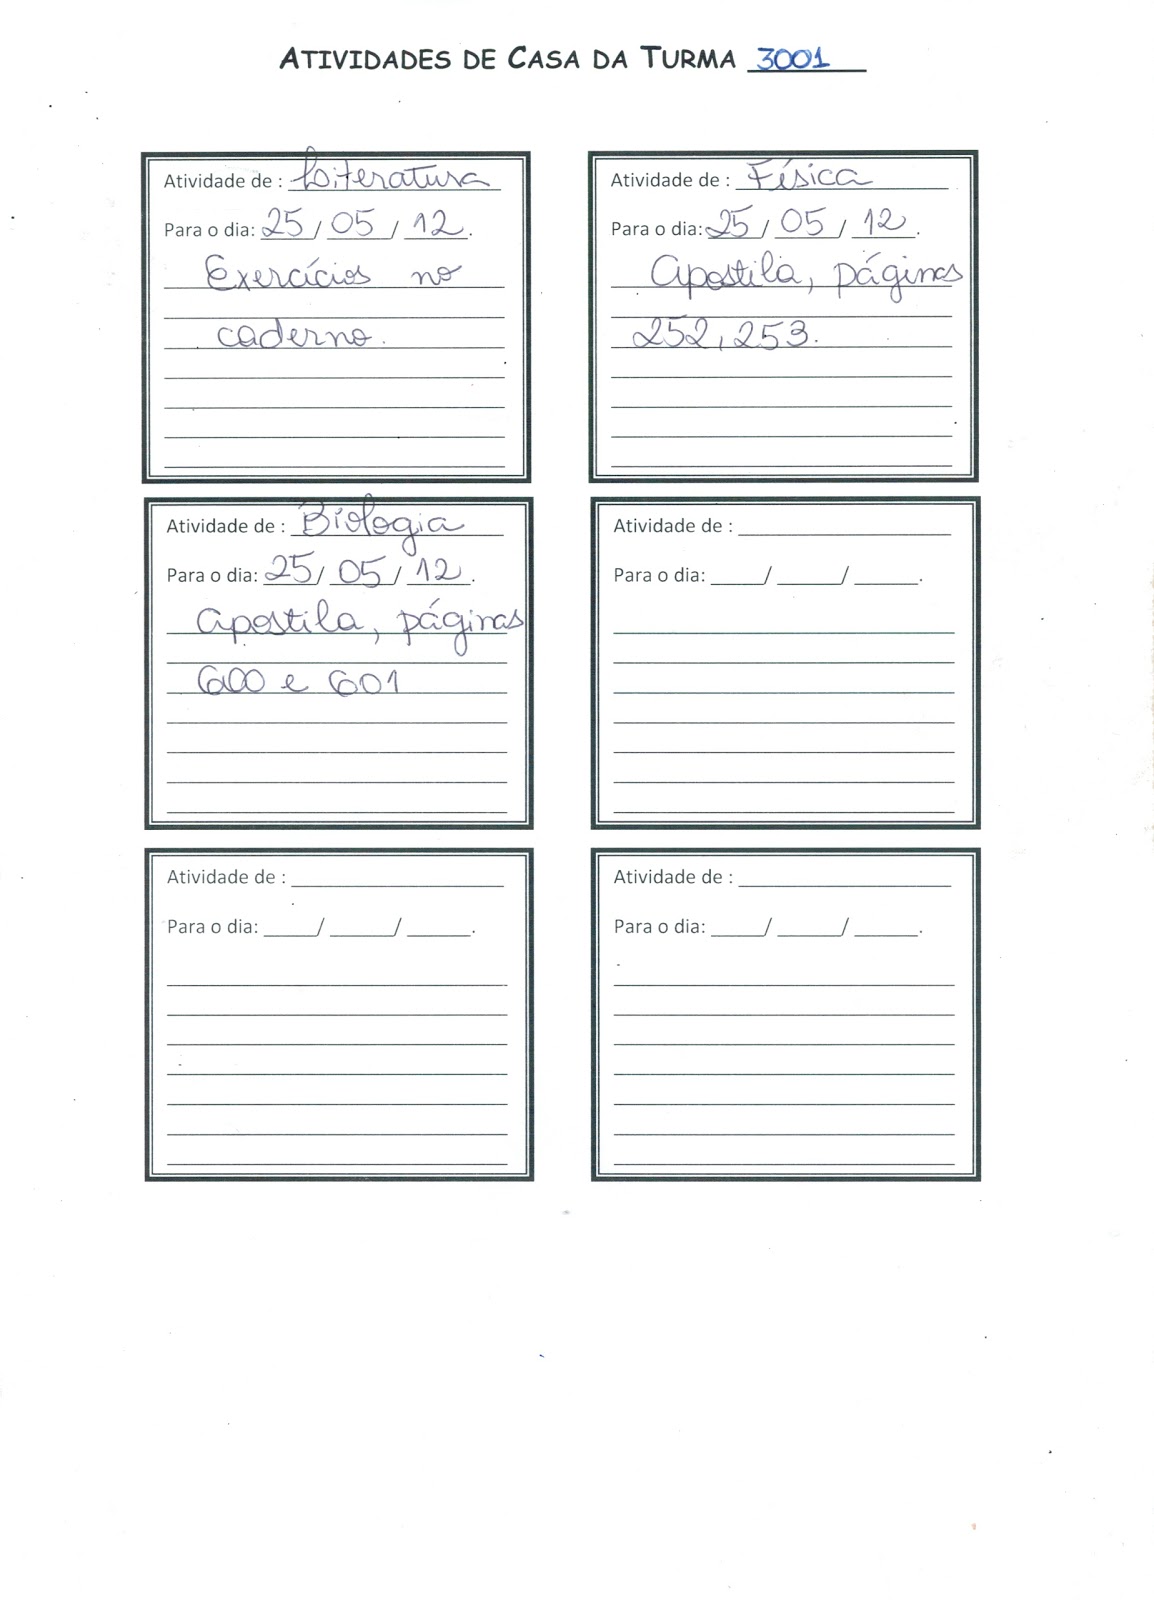 ATIVIDADES DE CASA DA TURMA 3001
Atividade de : Literatura
Para o dia: 25 / 05 / 12.
Exercícios no
caderno.
Atividade de : Física
Para o dia: 25 / 05 / 12.
apostila, páginas
252, 253.
Atividade de : Biologia
Para o dia: 25 / 05 / 12.
apostila, páginas
600 e 601
Atividade de : ______
Para o dia: _____/ ______/ ______.
Atividade de : ______
Para o dia: _____/ ______/ ______.
Atividade de : ______
Para o dia: _____/ ______/ ______.